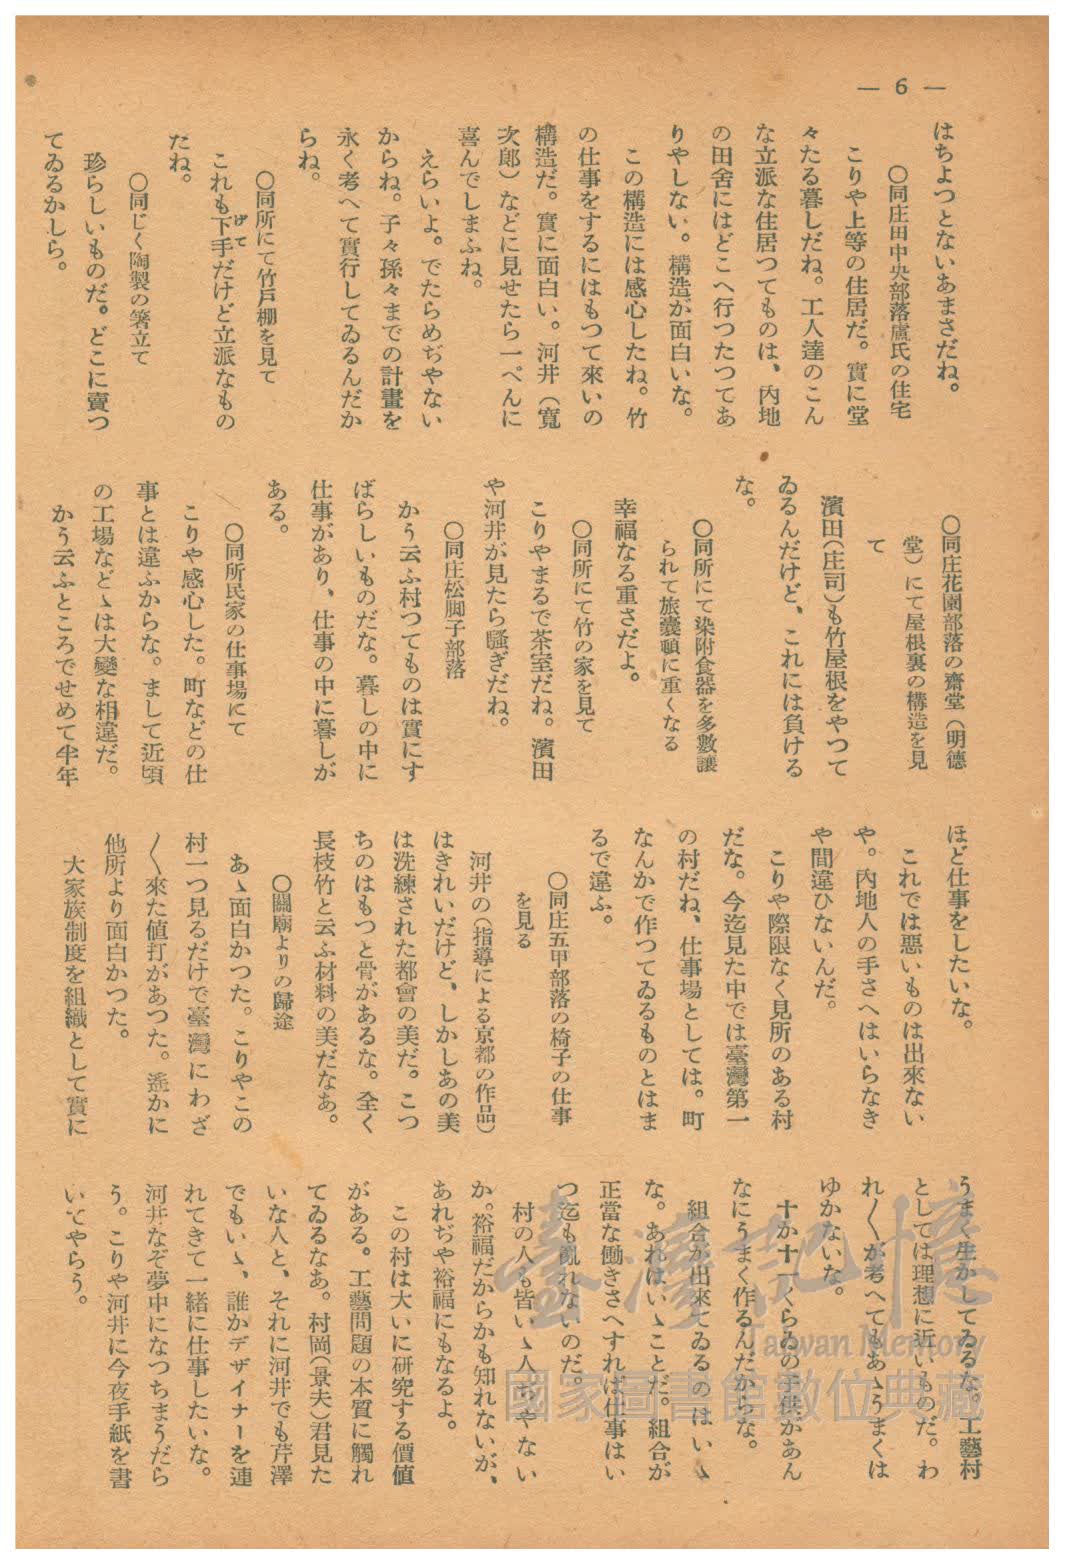 — 6 —
はちよつとないあまさだね。
〇同庄田中央部落盧氏の住宅
こりや上等の住居だ。實に堂
々たる暮しだね。工人達のこん
な立派な住居つてものは、內地
の田舍にはどこへ行つたつてあ
りやしない。構造が面白いな。
この構造には感心したね。竹
の仕事をするにはもつて來いの
構造だ。實に面白い。河井（寬
次郞）などに見せたら一ぺんに
喜んでしまふね。
えらいよ。でたらめぢやない
からね。子々孫々までの計畫を
永く考へて實行してゐるんだか
らね。
〇同所にて竹戶棚を見て
これも下手だけど立派なもの
げて
だね。
〇同じく陶製の箸立て
珍らしいものだ。どこに賣つ
てゐるかしら。
〇同庄花園部落の齋堂（明德
堂）にて屋根裏の構造を見
て
濱田（庄司）も竹屋根をやつて
ゐるんだけど、これには負ける
な。
〇同所にて染附食器を多數讓
られて旅囊頓に重くなる
幸福なる重さだよ。
〇同所にて竹の家を見て
こりやまるで茶室だね。濱田
や河井が見たら騷ぎだね。
〇同庄松脚子部落
かう云ふ村つてものは實にす
ばらしいものだな。暮しの中に
仕事があり、仕事の中に暮しが
ある。
〇同所民家の仕事場にて
こりや感心した。町などの仕
事とは違ふからな。まして近頃
の工場などゝは大變な相違だ。
かう云ふところでせめて半年
ほど仕事をしたいな。
これでは悪いものは出來ない
や。內地人の手さへはいらなき
や間違ひないんだ。
こりや際限なく見所のある村
だな。今迄見た中では臺灣第一
の村だね、仕事場としては。町
なんかで作つてゐるものとはま
るで違ふ。
〇同庄五甲部落の椅子の仕事
を見る
河井の（指導による京都の作品）
はきれいだけど、しかしあの美
は洗練された都會の美だ。こつ
ちのはもつと骨があるな。全く
長枝竹と云ふ材料の美だなあ。
〇關廟よりの歸途
あゝ面白かつた。こりやこの
村一つ見るだけで臺灣にわざ
〱來た値打があつた。遙かに
他所より面白かつた。
大家族制度を組織として實に
うまく生かしてゐるな。工藝村
としては理想に近いものだ。わ
れ〱が考へてもあゝうまくは
ゆかないな。
十か十一くらゐの子供があん
なにうまく作るんだからな。
組合が出來てゐるのはいゝ
な。あれはいゝことだ。組合が
正當な働きさへすれば仕事はい
つ迄も亂れないのだ。
村の人も皆いゝ人ぢやない
か。裕福だからかも知れないが、
あれぢや裕福にもなるよ。
この村は大いに硏究する價値
がある。工藝問題の本質に觸れ
てゐるなあ。村岡（景夫）君見た
いな人と、それに河井でも芹澤
でもいゝ、誰かデザイナーを連
れてきて一緒に仕事したいな。
河井なぞ夢中になつちまうだら
う。こりや河井に今夜手紙を書
いてやらう。
臺灣記憶
Taiwan Memory
國家圖書館數位典藏